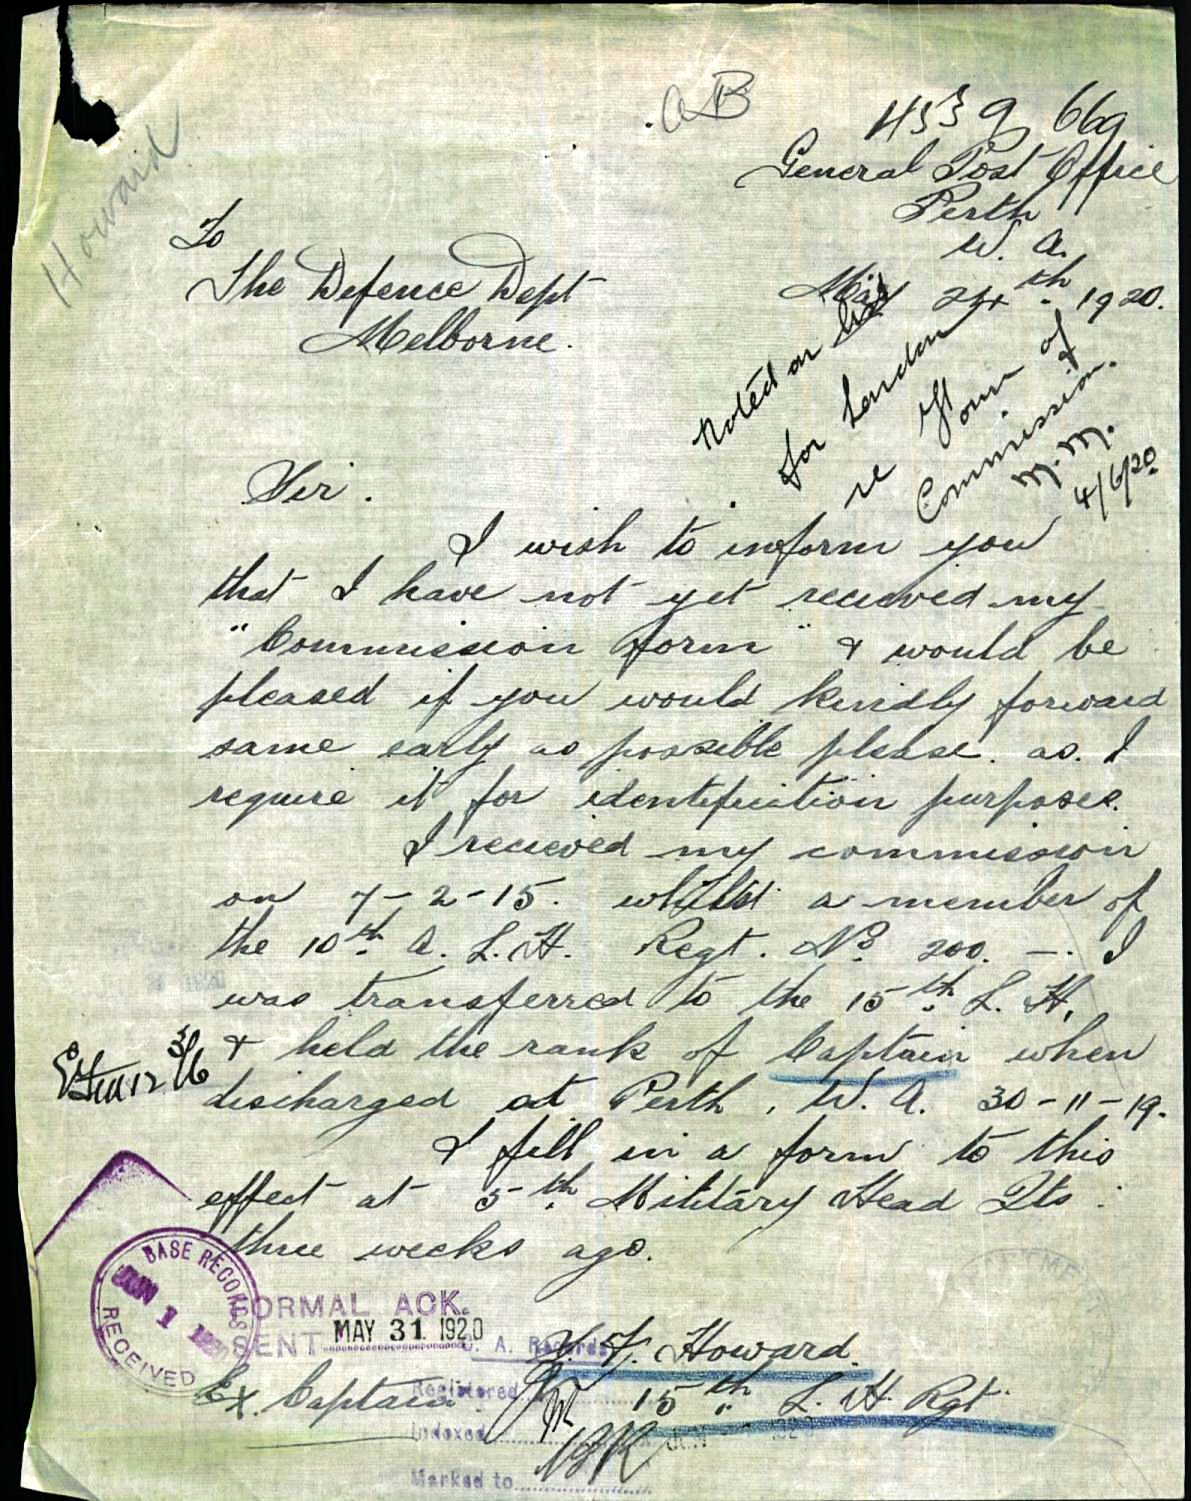 AB
Howard
General Post Office
Perth
W. A.
May 24th 1920.
To
The Defence Dept
Melborne.
Noted on list
for London
re Form of
Commission.
M.M.
4/6/20
Sir.
I wish to inform you
that I have not yet recieved my
"Commission form" & would be
pleased if you would kindly forward
same early as possible please. as. I
require it for identifiction purposes.
I recieved my commission
on 7-2-15. whilst a member of
the 10th A. L. H. Regt. No 200. — I
was transferred to the 15th L. H.
& held the rank of Captain when
discharged at Perth, W. A. 30-11-19.
I fill in a form to this
effect at 5th Military Head Qts.
three weeks ago.
BASE RECORDS
JUN 1
RECEIVED
FORMAL ACK.
SENT MAY 31 1920
A. Records
Howard.
Registered
Ex. Captain 15th L. H. Rgt
Indexed
Marked to